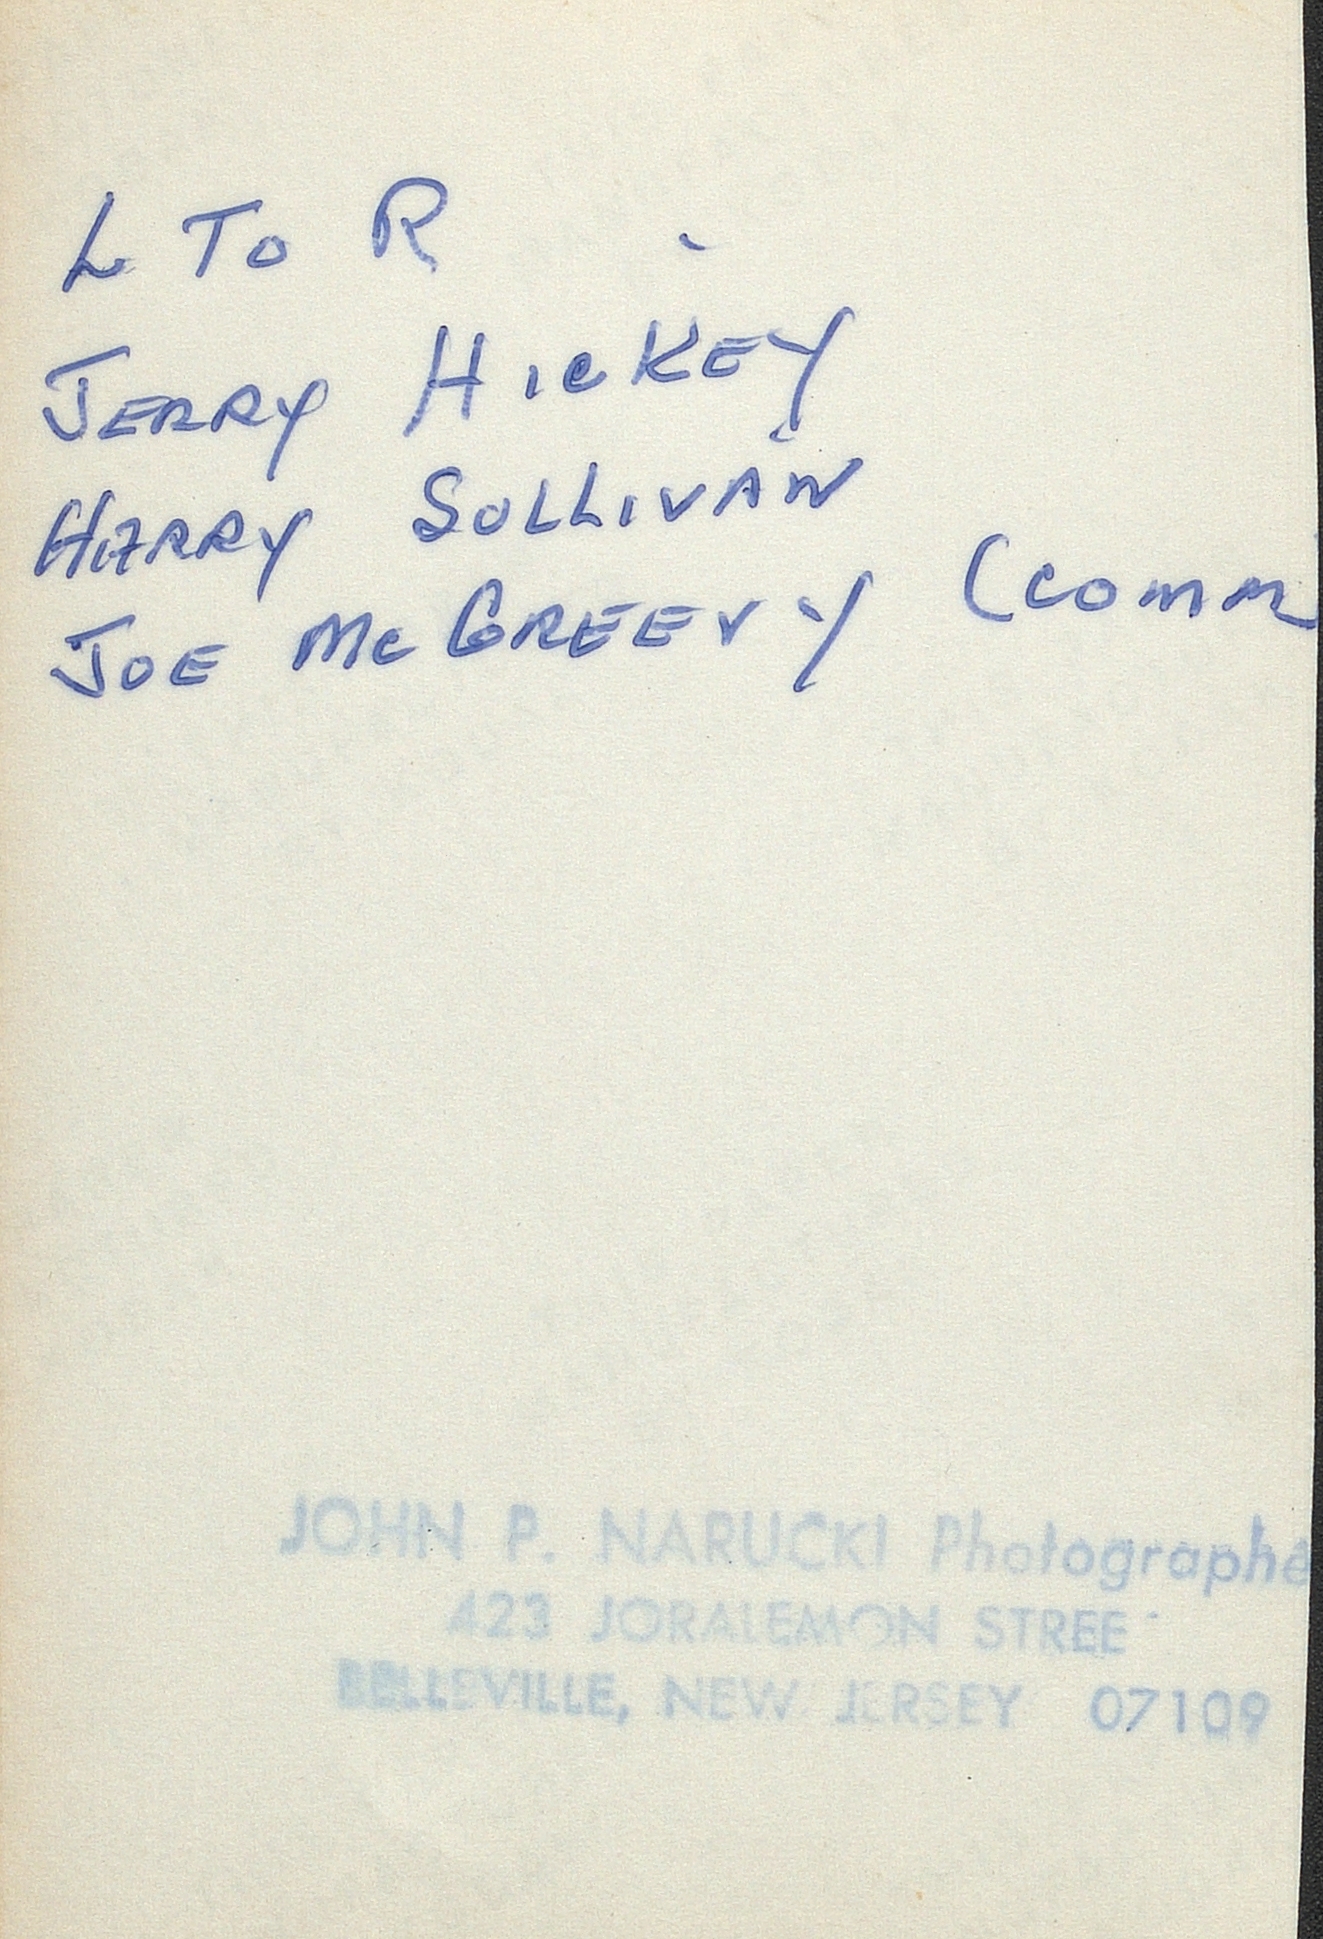 L To R
JERRY HICKEY
HARRY SULLIVAN
JOE McGREEVY (comm
JOHN P. NARUCKI Photographe
423 JORALEMON STREE
BELLEVILLE, NEW JERSEY 07109